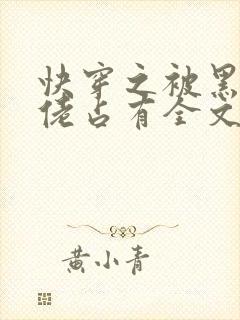 快穿之被黑
佬占有全文
黄小青